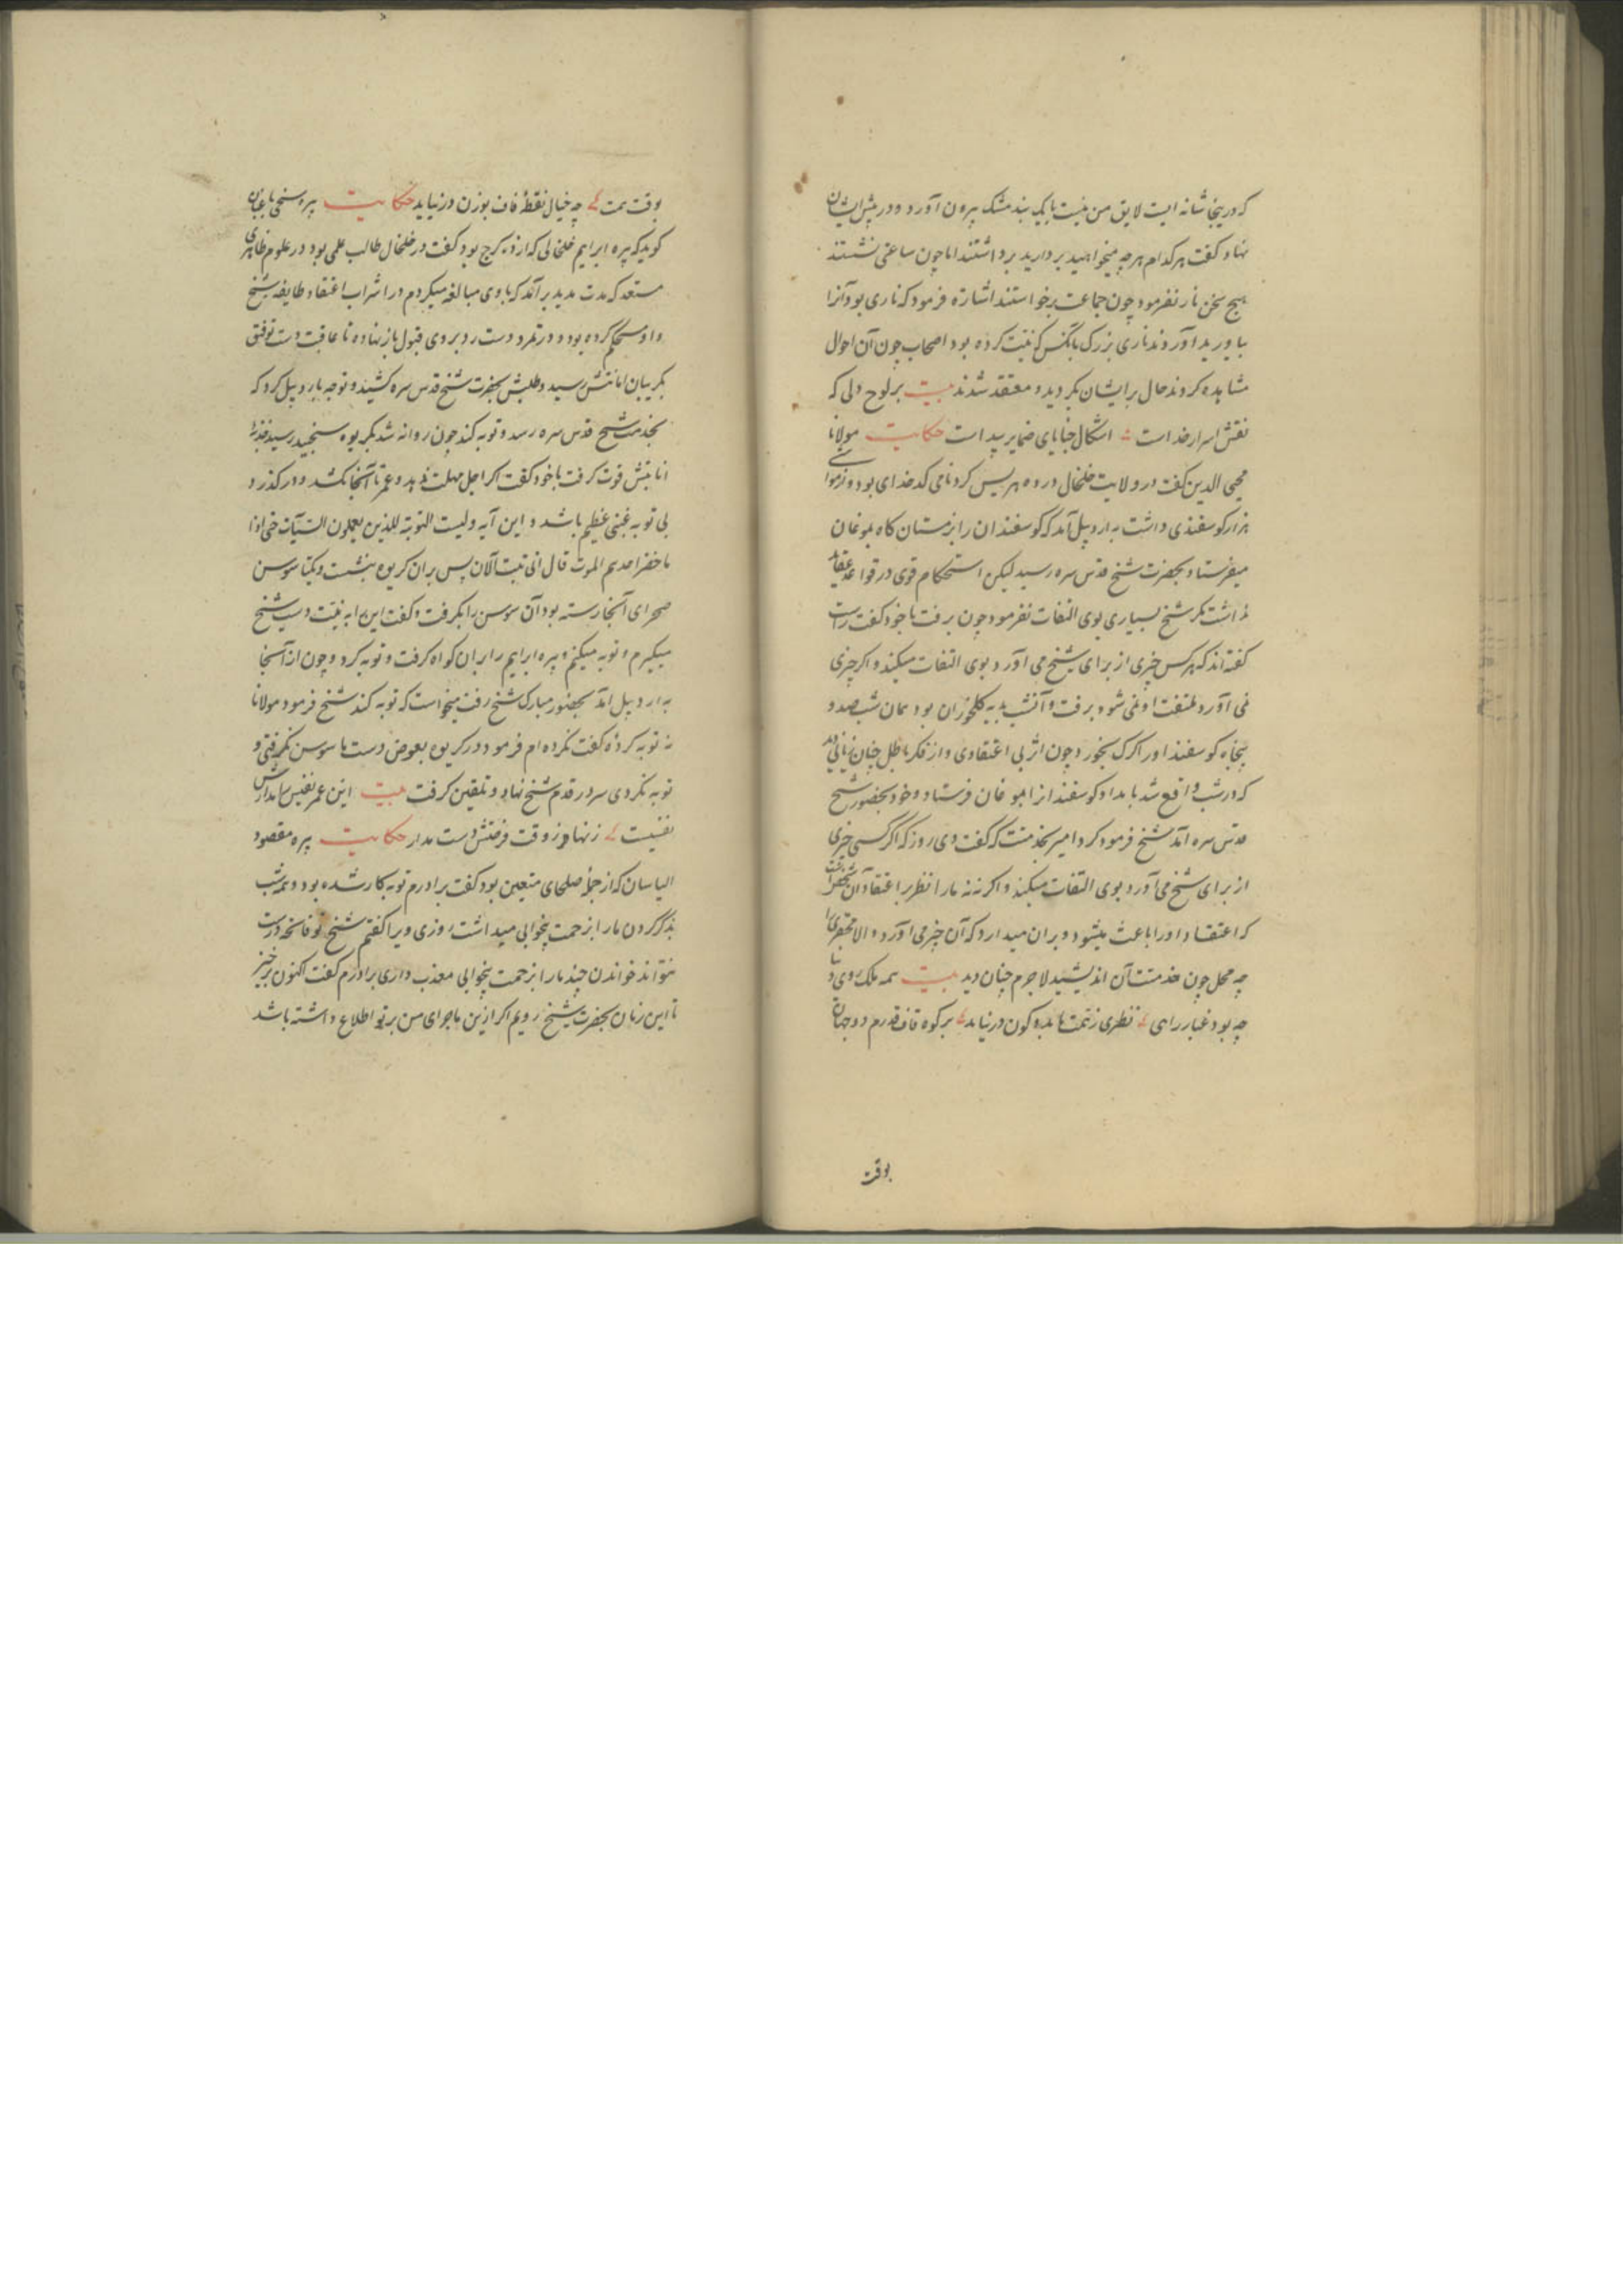 که درینجا شانه ایست لایق من نیست بایک بند مشک بیرون آورد و در پیش ایشان
نهاد و گفت هر کدام هر چه میخواهید بردارید برداشتند اما چون ساعتی نشستند
هیچ سخن نار نفرمود چون جماعت برخواستند اشارة فرمود که ناری بود آنرا
بیاورید آوردند ناری بزرگ بانکس که نیت کرده بود اصحاب چون آن احوال
مشاهده کردند حال بر ایشان بگردید و معتقد شدند بیت بر لوح دلی که
نقش اسرار خداست اشکال خبایای ضمایر پیداست حکایت مولانا
محیی الدین گفت در ولایت خلخال در ده هریس کرد نامی کدخدای بود و
هزار گوسفندی داشت به اردبیل آمد که گوسفندان را بزمستان گاه بموغان
میفرستاد و بحضرت شیخ قدس سره رسید لیکن استحکام قوی در قواعد عقاید
نداشت مگر شیخ بسیاری بوی التفات نفرمود چون برفت با خود گفت راست
گفته اند که هر کس چیزی از برای شیخ می آورد بوی التفات میکند و اگر چیزی
نمی آورد ملتفت او نمی شود برفت و آنشب بدیه کلخوران بود همان شب صد و
پنجاه گوسفند او را گرگ بخورد چون اثر بی اعتقادی و از فکر باطل چنان زیانی دید
که در شب واقع شد بامداد گوسفند از انموغان فرستاد و خود بحضور شیخ
قدس سره آمد شیخ فرمود کرد امیر بخدمتت که گفت دی روز که اگر کسی چیزی
از برای شیخ می آورد بوی التفات میکند و اگر نه نه ما را نظر بر اعتقاد آن شخص است
که اعتقاد او را باعث میشود و بران میدارد که آن چیز می آورد و الا محقری را
چه محل چون خدمتت آن اندیشید لاجرم چنان دید بیت همه ملک روی دنیا
چه بود غبار راهی نظری ز همت ما بدو کون در نیاید بر کوه قاف قدرم دو جهان
بوقت
بوقت همت چه خیال نقطۀ قاف بوزن در نیاید حکایت پیره سنجی باغبان
گوید که پیره ابراهیم خلخالی که از دیه کرج بود گفت در خلخال طالب علمی بود در علوم ظاهری
مستعد که مدت مدید بر آمد که با وی مبالغه میکردم در اشراب اعتقاد طایفه شیخ
و او مستحکم کرده بود و در تمرد دست رد بر وی قبول باز نهاده تا عاقبت دست توفیق
بگریبان انابتش رسید و طلبش بحضرت شیخ قدس سره کشید و توجه باردبیل کرد که
بخدمت شیخ قدس سره رسد و توبه کند چون روانه شد بگریوه سنجید رسید جذبۀ
انابتش قوت گرفت با خود گفت اگر اجل مهلت ندهد و عمر تا آنجا نکشد و در گذرد
بی توبه غبنی عظیم باشد و این آیه ولیست التوبة للذین یعملون السیآت حتی اذا
ما حضر احدهم الموت قال انی تبت الآن پس بران گریوه بنشست و یکتا سوسن
صحرای آنجا رسته بود آن سوسن را بگرفت و گفت این را به نیت دست شیخ
میگیرم و توبه میکنم و پیره ابراهیم را بران گواه گرفت و توبه کرد و چون از آنجا
به اردبیل آمد بحضور مبارک شیخ رفت میخواست که توبه کند شیخ فرمود مولانا
نه توبه کردۀ گفت نکرده ام فرمود در گریوه بعوض دست ما سوسن نگرفتی و
توبه نکردی سر در قدم شیخ نهاد و تلقین گرفت بیت این عمر نفیس
نفسیست زنهار ز وقت فرصتش دست مدار حکایت پیره مقصود
الیاسان که از جملۀ صلحای متعین بود گفت برادرم توبه کار شده بود و همه شب
بذکر کردن ما را بزحمت بیخوابی میداشت روزی ویرا گفتم شیخ تو فاتحه درست
نتواند خواندن چند ما را بزحمت بیخوابی معذب داری برادرم گفت اکنون برخیز
تا این زمان بحضرت شیخ رویم اگر ازین ماجرای من بر تو اطلاع داشته باشد